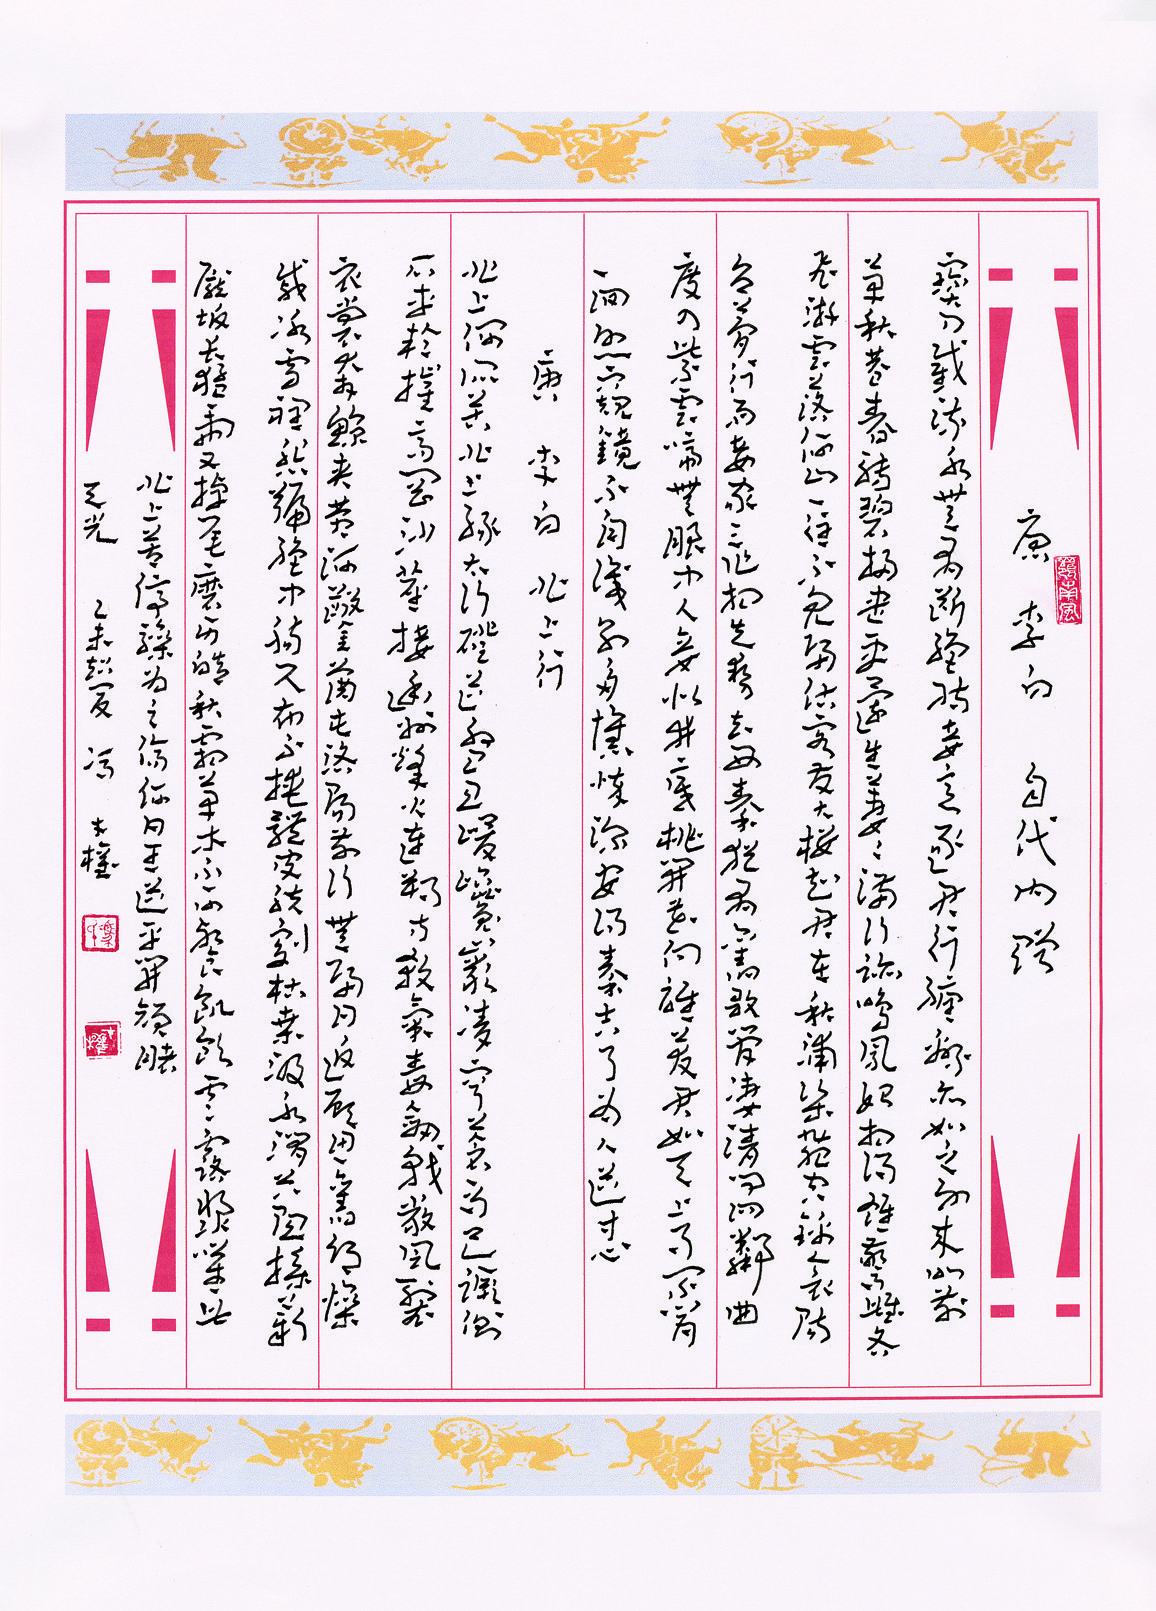 唐 李白 自代內贈
寶刀截流水無有斷絕時妾意逐君行纏綿亦如之別來門前
草秋巷春轉碧掃盡更還生萋〻滿行跡鳴鳳始相得雄驚雌各
飛游雲落何山一往不見歸估客發大樓知君在秋浦梁苑空錦衾陽
台夢行雨妾家三作相失勢去西秦猶有舊歌管淒清聞四鄰曲
度入紫雲啼無眼中人妾似井底桃開花向誰笑君如天上月不肯
一回照窺鏡不自識別多憔悴深安得秦吉了為人道寸心
唐 李白 北上行
北上何所苦北上緣太行磴道盤且峻巉巖凌穹蒼馬足蹶側
石車輪摧高岡沙塵接幽州烽火連朔方殺氣毒劍戟嚴風裂
衣裳奔鯨夾黃河鑿齒屯洛陽前行無歸日返顧思舊鄉慘
戚冰雪裡悲號絕中腸尺布不掩體皮膚劇枯桑汲水澗谷阻採薪
隴坂長猛虎又掉尾磨牙皓秋霜草木不可餐飢飲零露漿嘆此
北上苦停驂為之傷何日王道平開顏睹
天光 乙未初夏 馮
嶺南風